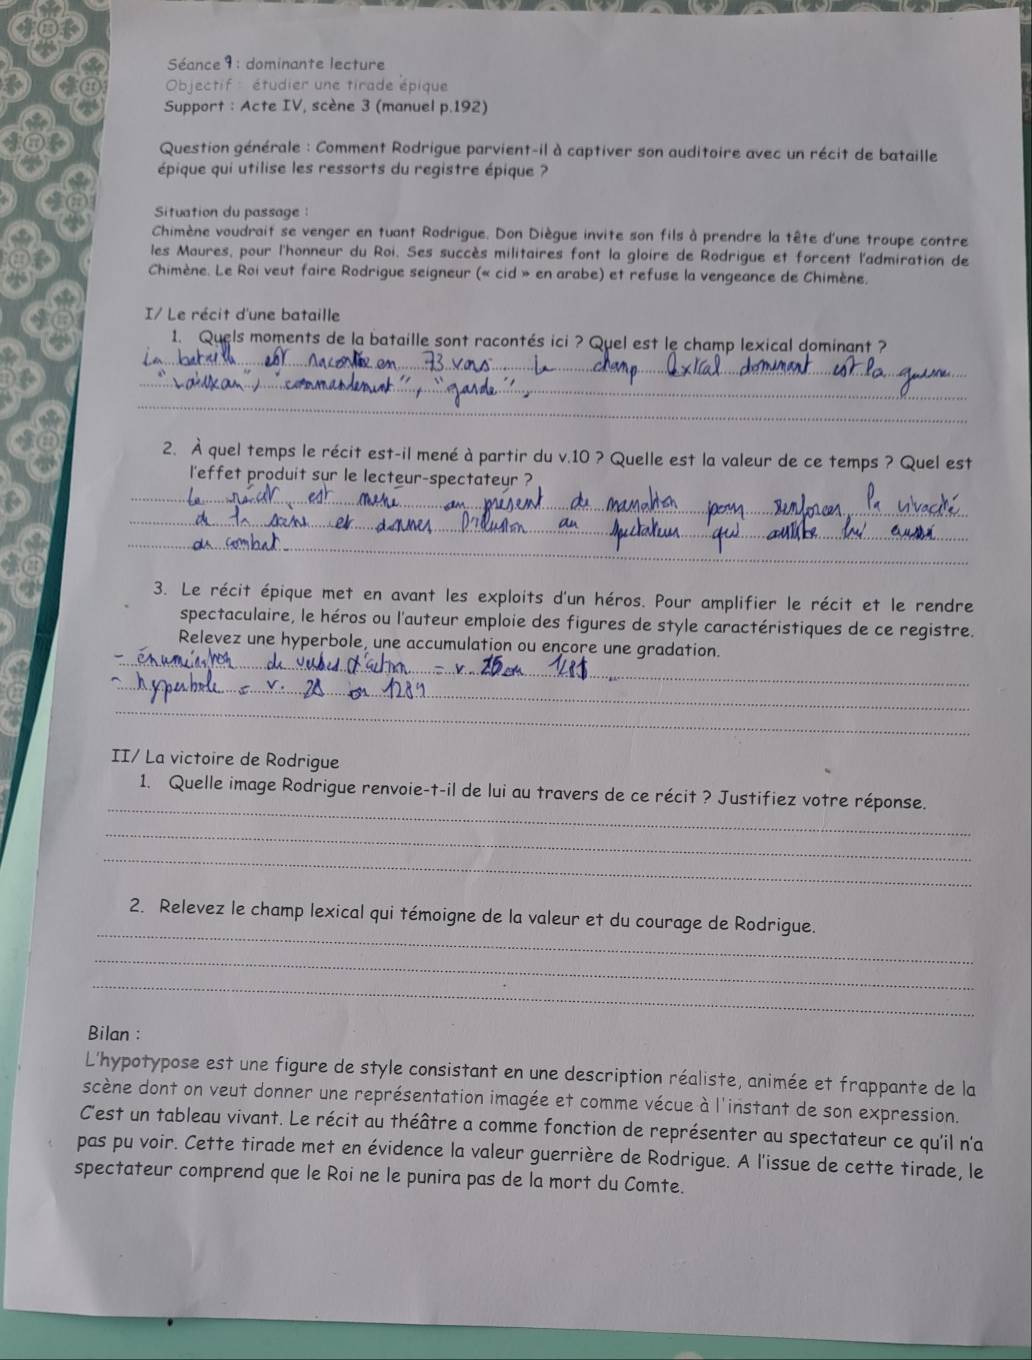 Séance 9 : dominante lecture
Objectif : étudier une tirade épique
Support : Acte IV, scène 3 (manuel p.192)
Question générale : Comment Rodrigue parvient-il à captiver son auditoire avec un récit de bataille
épique qui utilise les ressorts du registre épique ?
Situation du passage :
Chimène voudrait se venger en tuant Rodrigue. Don Diègue invite son fils à prendre la tête d'une troupe contre
les Maures, pour l'honneur du Roi. Ses succès militaires font la gloire de Rodrigue et forcent l'admiration de
Chimène. Le Roi veut faire Rodrigue seigneur (« cid » en arabe) et refuse la vengeance de Chimène.
I/ Le récit d'une bataille
1. Quels moments de la bataille sont racontés ici ? Quel est le champ lexical dominant ?
La bataille est racontée en 73 vers. Le champ lexical dominant est la guerre
"vaisseaux", "commandement", "garde",
2. À quel temps le récit est-il mené à partir du v.10 ? Quelle est la valeur de ce temps ? Quel est
l'effet produit sur le lecteur-spectateur ?
Le récit est mené au présent de narration pour renforcer la vivacité
de la scène et donner l'illusion au spectateur qui assiste lui aussi
au combat.
3. Le récit épique met en avant les exploits d'un héros. Pour amplifier le récit et le rendre
spectaculaire, le héros ou l'auteur emploie des figures de style caractéristiques de ce registre.
Relevez une hyperbole, une accumulation ou encore une gradation.
- énumération de verbes d'action = v. 25 ou
- hyperbole = v. 28 ou 1289
II/ La victoire de Rodrigue
1. Quelle image Rodrigue renvoie-t-il de lui au travers de ce récit ? Justifiez votre réponse.
2. Relevez le champ lexical qui témoigne de la valeur et du courage de Rodrigue.
Bilan :
L'hypotypose est une figure de style consistant en une description réaliste, animée et frappante de la
scène dont on veut donner une représentation imagée et comme vécue à l'instant de son expression.
C'est un tableau vivant. Le récit au théâtre a comme fonction de représenter au spectateur ce qu'il n'a
pas pu voir. Cette tirade met en évidence la valeur guerrière de Rodrigue. A l'issue de cette tirade, le
spectateur comprend que le Roi ne le punira pas de la mort du Comte.